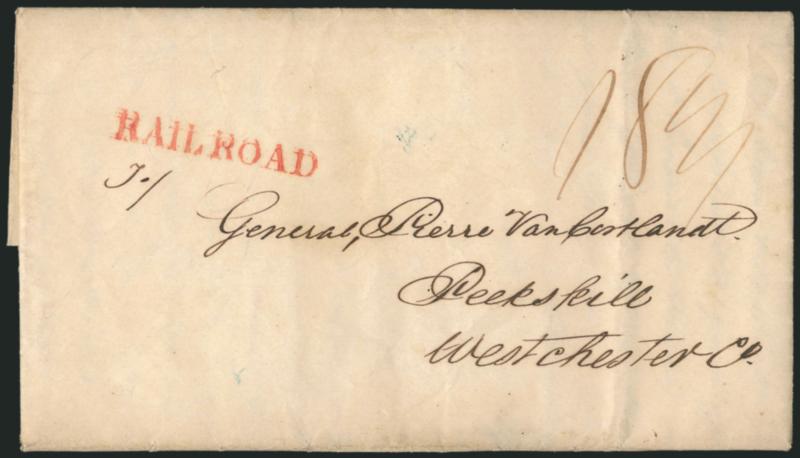 RAILROAD
18¾
To/
General, Pierre Van Cortlandt.
Peekskill
Westchester Co.